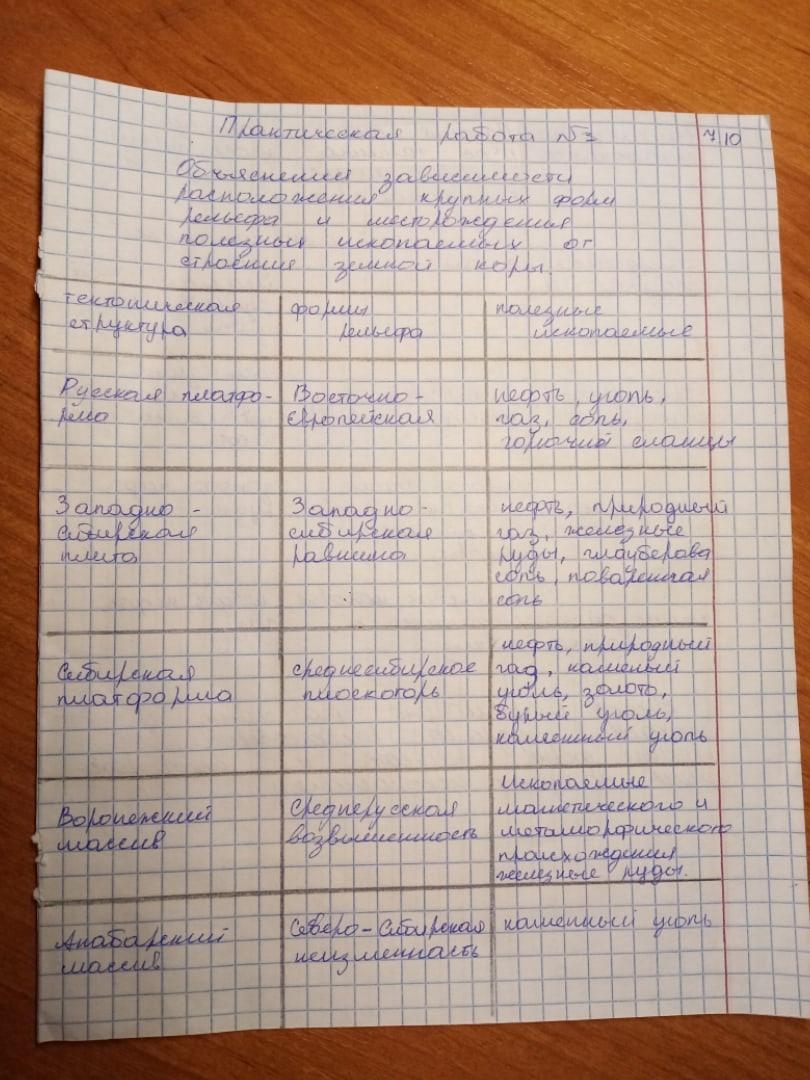 Практическая работа №3
7/10
Объяснения зависимости
расположения крупных форм
рельефа и месторождения
полезных ископаемых от
строения земной коры.
тектоническая
структура
формы
рельефа
полезные
ископаемые
Русская платфо-
рма
Восточно-
Европейская
нефть, уголь,
газ, соль,
горючий сланцы
Западно -
сибирская
плита
Западно-
сибирская
равнина
нефть, природный
газ, железные
руды, глауберова
соль, поваренная
соль
Сибирская
платформа
среднесибирское
плоскогорь
нефть, природный
гад, каменый
уголь, золото,
бурый уголь,
каменный уголь
Воронежский
массив
Среднерусская
возвышенность
Ископаемые
магнетического и
метаморфического
происхождения
железные руды.
Анабарский
массив
Северо-Сибирская
неизменность
каменный уголь